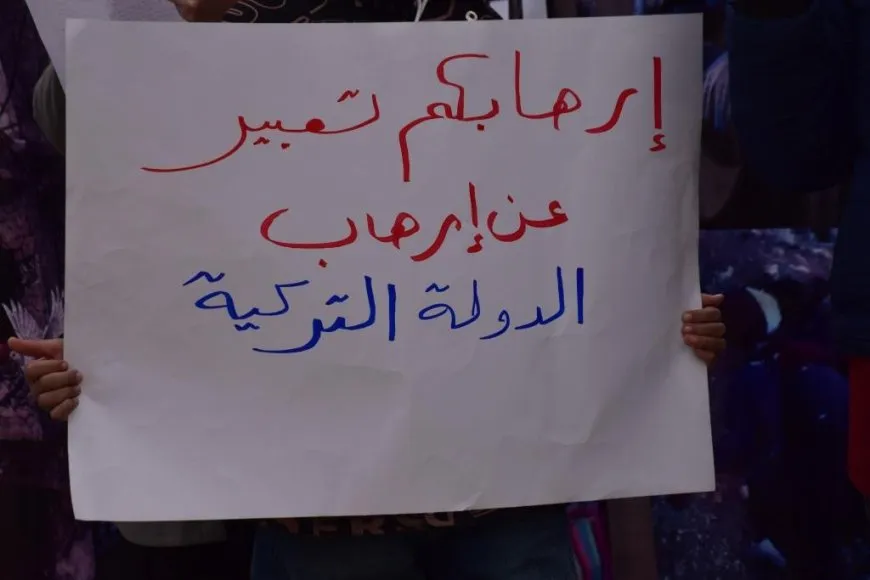 إرهابكم تعبير
عن إرهاب
الدولة التركية